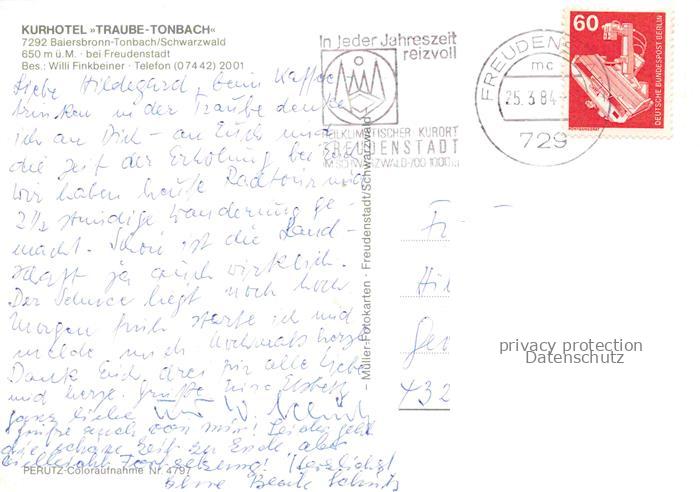 KURHOTEL »TRAUBE-TONBACH«
7292 Baiersbronn-Tonbach/Schwarzwald
650 m ü.M. · bei Freudenstadt
Bes.: Willi Finkbeiner · Telefon (07442) 2001
Liebe Hildegard, beim Kaffee
trinken in der Traube denke
ich an Dich – an Euch und
die Zeit der Erholung bei Euch
Wir haben heute
2½ stündige Wanderung ge-
macht. Schön ist die Land-
schaft ja auch wirklich.
Der Schnee liegt noch hoch
Morgen früh starte ich und
melde mich nochmals
Dank Euch drei für alle Liebe
und herzl. Grüße Eure Elsbeth
ganz liebe
Grüße auch von mir! Leider geht
die schöne Zeit zu Ende, aber
vielleicht Fortsetzung! Herzlichst
Beate
PERUTZ-Coloraufnahme Nr. 4797
– Müller-Fotokarten · Freudenstadt/Schwarzwald –
In jeder Jahreszeit
reizvoll
HEILKLIMATISCHER KURORT
FREUDENSTADT
IM SCHWARZWALD
FREUDEN
mc
25.3.84
729
60
DEUTSCHE BUNDESPOST BERLIN
RÖNTGENGERÄT
Fr
Hil
Geo
432
privacy protection
Datenschutz